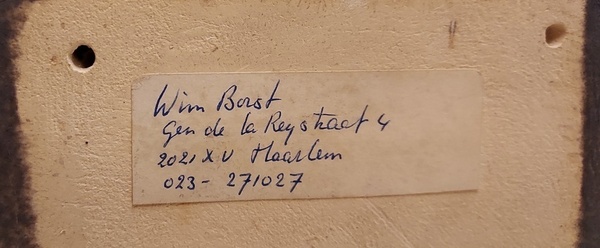 Wim Borst
Gen de la Reystraat 4
2021 XV Haarlem
023- 271027